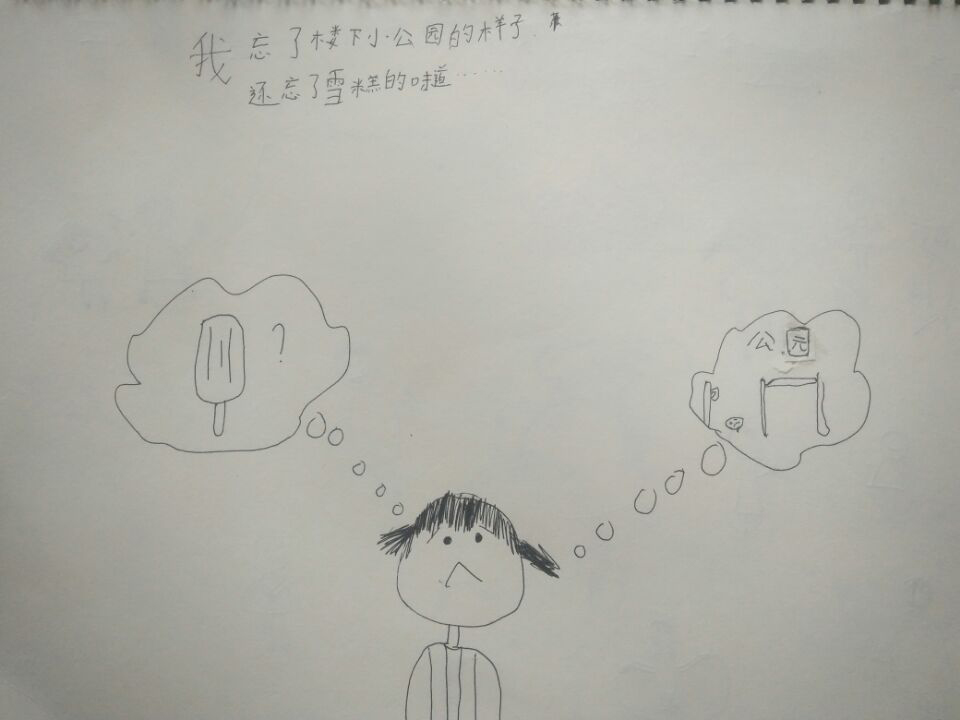 我忘了楼下小公园的样子.
还忘了雪糕的味道……
?
公园